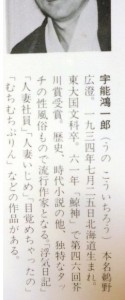 宇能鴻一郎（うの こういちろう） 本名鵜野
広澄。一九三四年七月二五日北海道生まれ。
東大国文科卒。六一年「鯨神」で第四六回芥
川賞受賞。歴史、時代小説の他、独特なタッ
チの性風俗もので流行作家となる。『浮気日記』
『人妻社員』『人妻いじめ』『目覚めちゃったの』
『むちむちぷりん』などの作品がある。